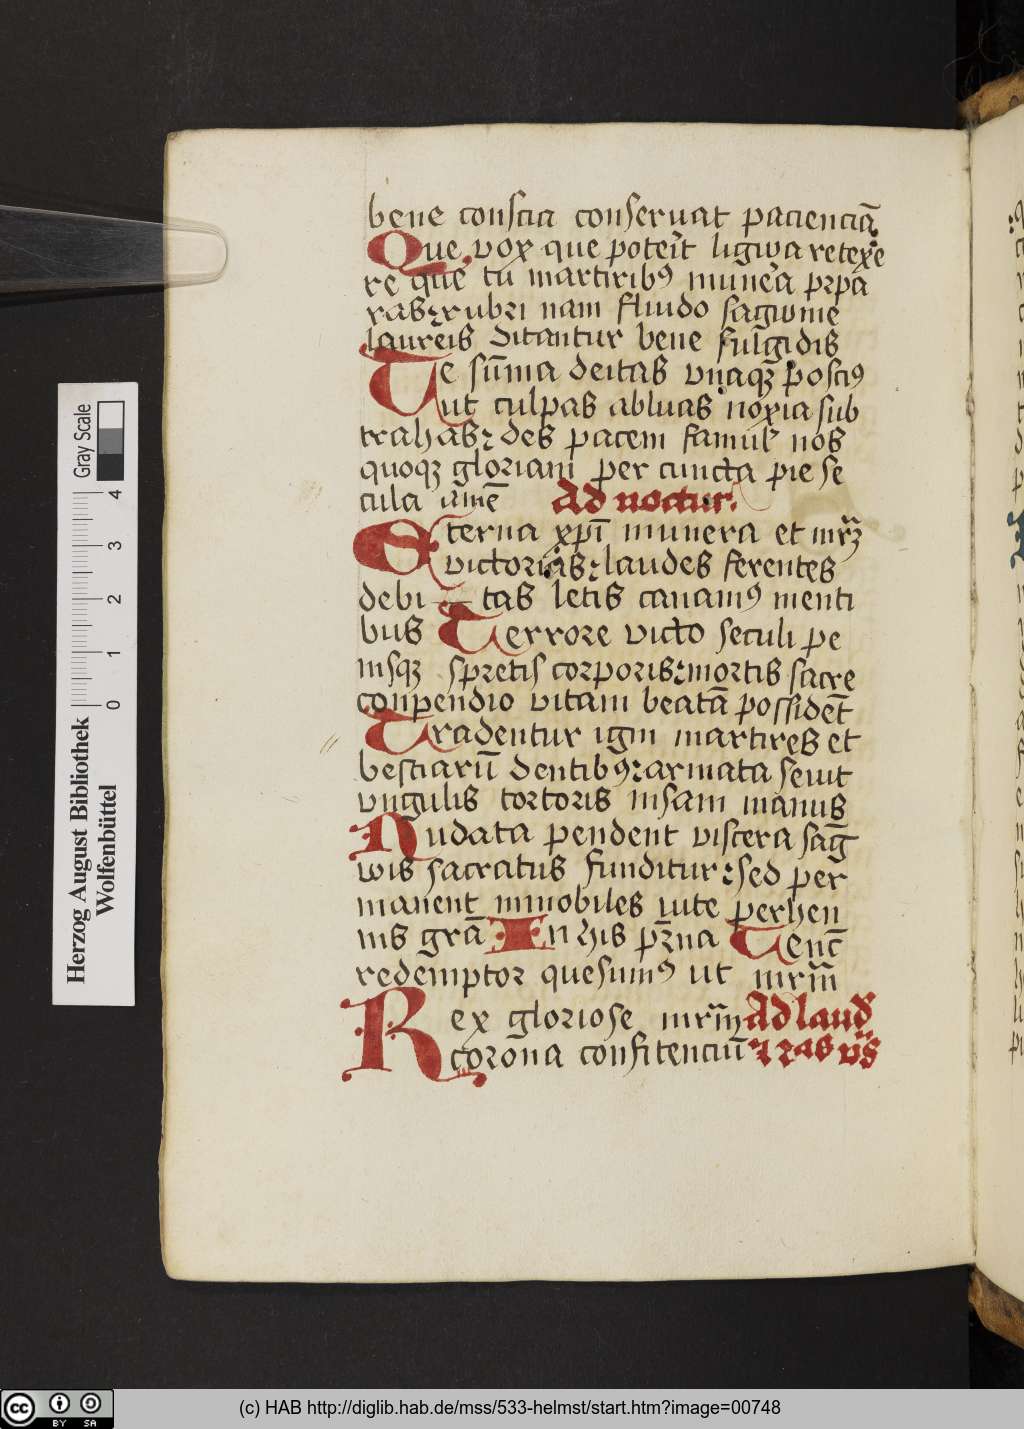 bene conscia conseruat pacienciā
Que vox que poterit ligwa retexe
re que tu martiribꝰ munera prepa
ras⁊rubri nam fluido sagwine
laureis ditantur bene fulgidis
Te sūma deitas vnaqꝫ poscimꝰ
Ut culpas abluas noxia sub
trahas⁊ des pacem famul' nos
quoqꝫ gloriam per cuncta pie se
cula amē Ad noctur.
Eterna xpī munera et mrꝫ
victorias⁊laudes ferentes
debi tas letis canamꝰ menti
bus Terrore victo seculi pe
nisqꝫ spretis corporis⁊mortis sacre
conpendio vitam beatā possidēt
Traduntur igni martires et
bestiarū dentibꝰ⁊armata seuit
vngulis tortoris insani manus
Nudata pendent viscera sāg
wis sacratus funditur⁊sed per
manent inmobiles uite perhen
nis grā In his pr̄na Te nc̄
redemptor quesumꝰ ut mrm̄
Rex gloriose mrm̄ Ad laud
corona confitenciū ⁊ ras vs
Herzog August Bibliothek
Wolfenbüttel
0 1 2 3 4
Gray Scale
cc BY SA
(c) HAB http://diglib.hab.de/mss/533-helmst/start.htm?image=00748